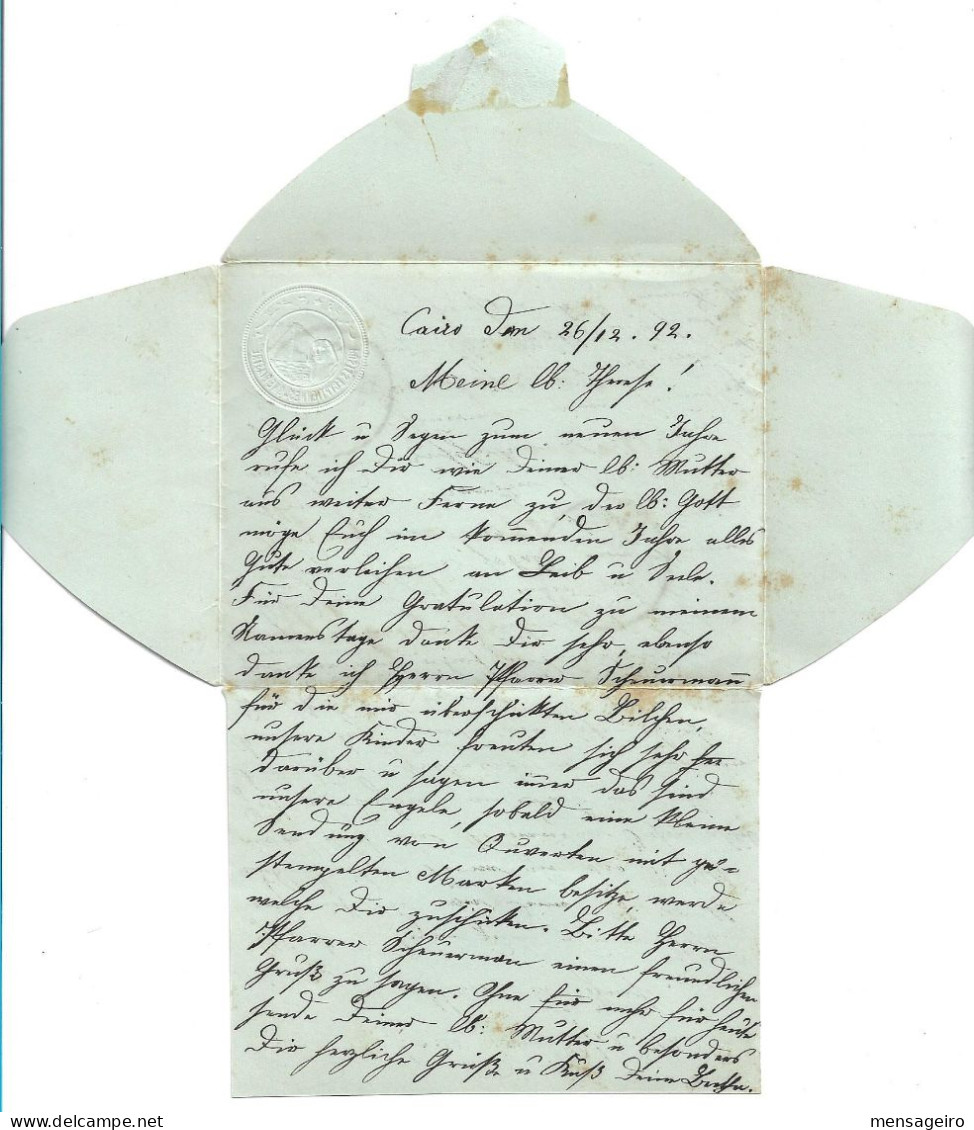 Cairo den 26/12. 92.
Meine lb: Therese!
Glück u Segen zum neuen Jahre
rufe ich Dir wie Deiner lb: Mutter
aus weiter Ferne zu, der lb: Gott
möge Euch im kommenden Jahre alles
Gute verleihen an Leib u Seele.
Für Deine Gratulation zu meinem
Namenstage danke Dir sehr, ebenso
danke ich Herrn Pfarrer Scheuermann
für die mir überschikten Bilchen,
unsere Kinder freuten sich sehr
darüber u sagen immer das sind
unsere Engele, sobald eine kleine
Sendung von Quverten mit ge=
stempelten Marken besitze, werde
welche Dir zuschicken. Bitte Herrn
Pfarrer Scheuerman einen freundlichen
Gruß zu sagen. Ohne für mehr für heute
sende Deiner lb: Mutter u besonders
Dir herzliche Grüße u Kuß Deine
mensageiro